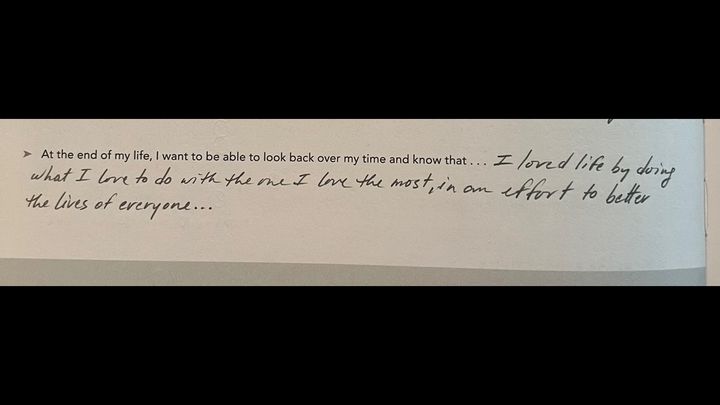 ➤ At the end of my life, I want to be able to look back over my time and know that ... I loved life by doing
what I love to do with the one I love the most, in an effort to better
the lives of everyone...